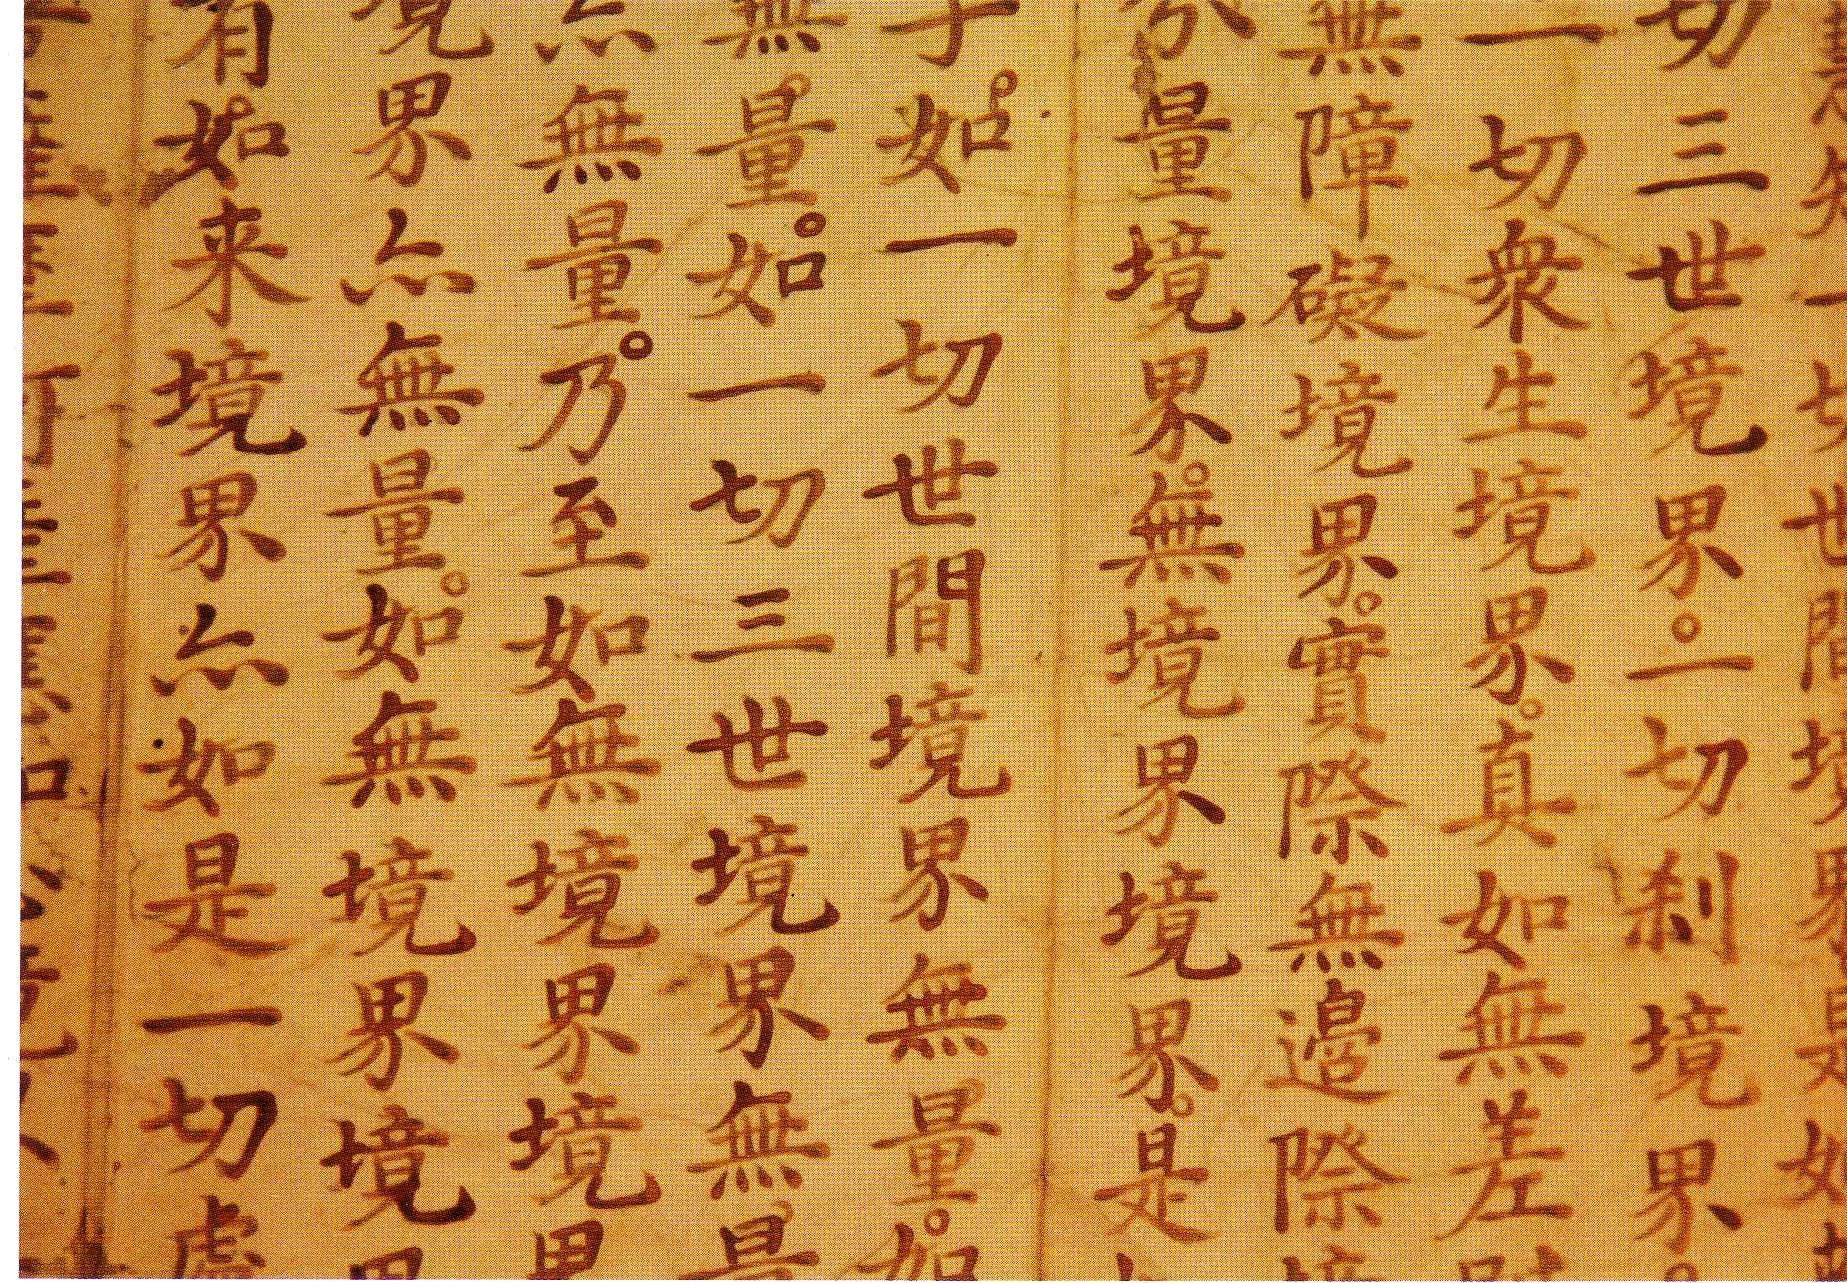 知一切世間境界是如
切三世境界。一切刹境界
一切衆生境界。真如無差
無障礙境界。實際無邊際
分量境界。無境界境界。是
子。如一切世間境界無量。如
無量。如一切三世境界無量
亦無量。乃至如無境界境界
境界亦無量。如無境界境界
有如来境界亦如是一切處